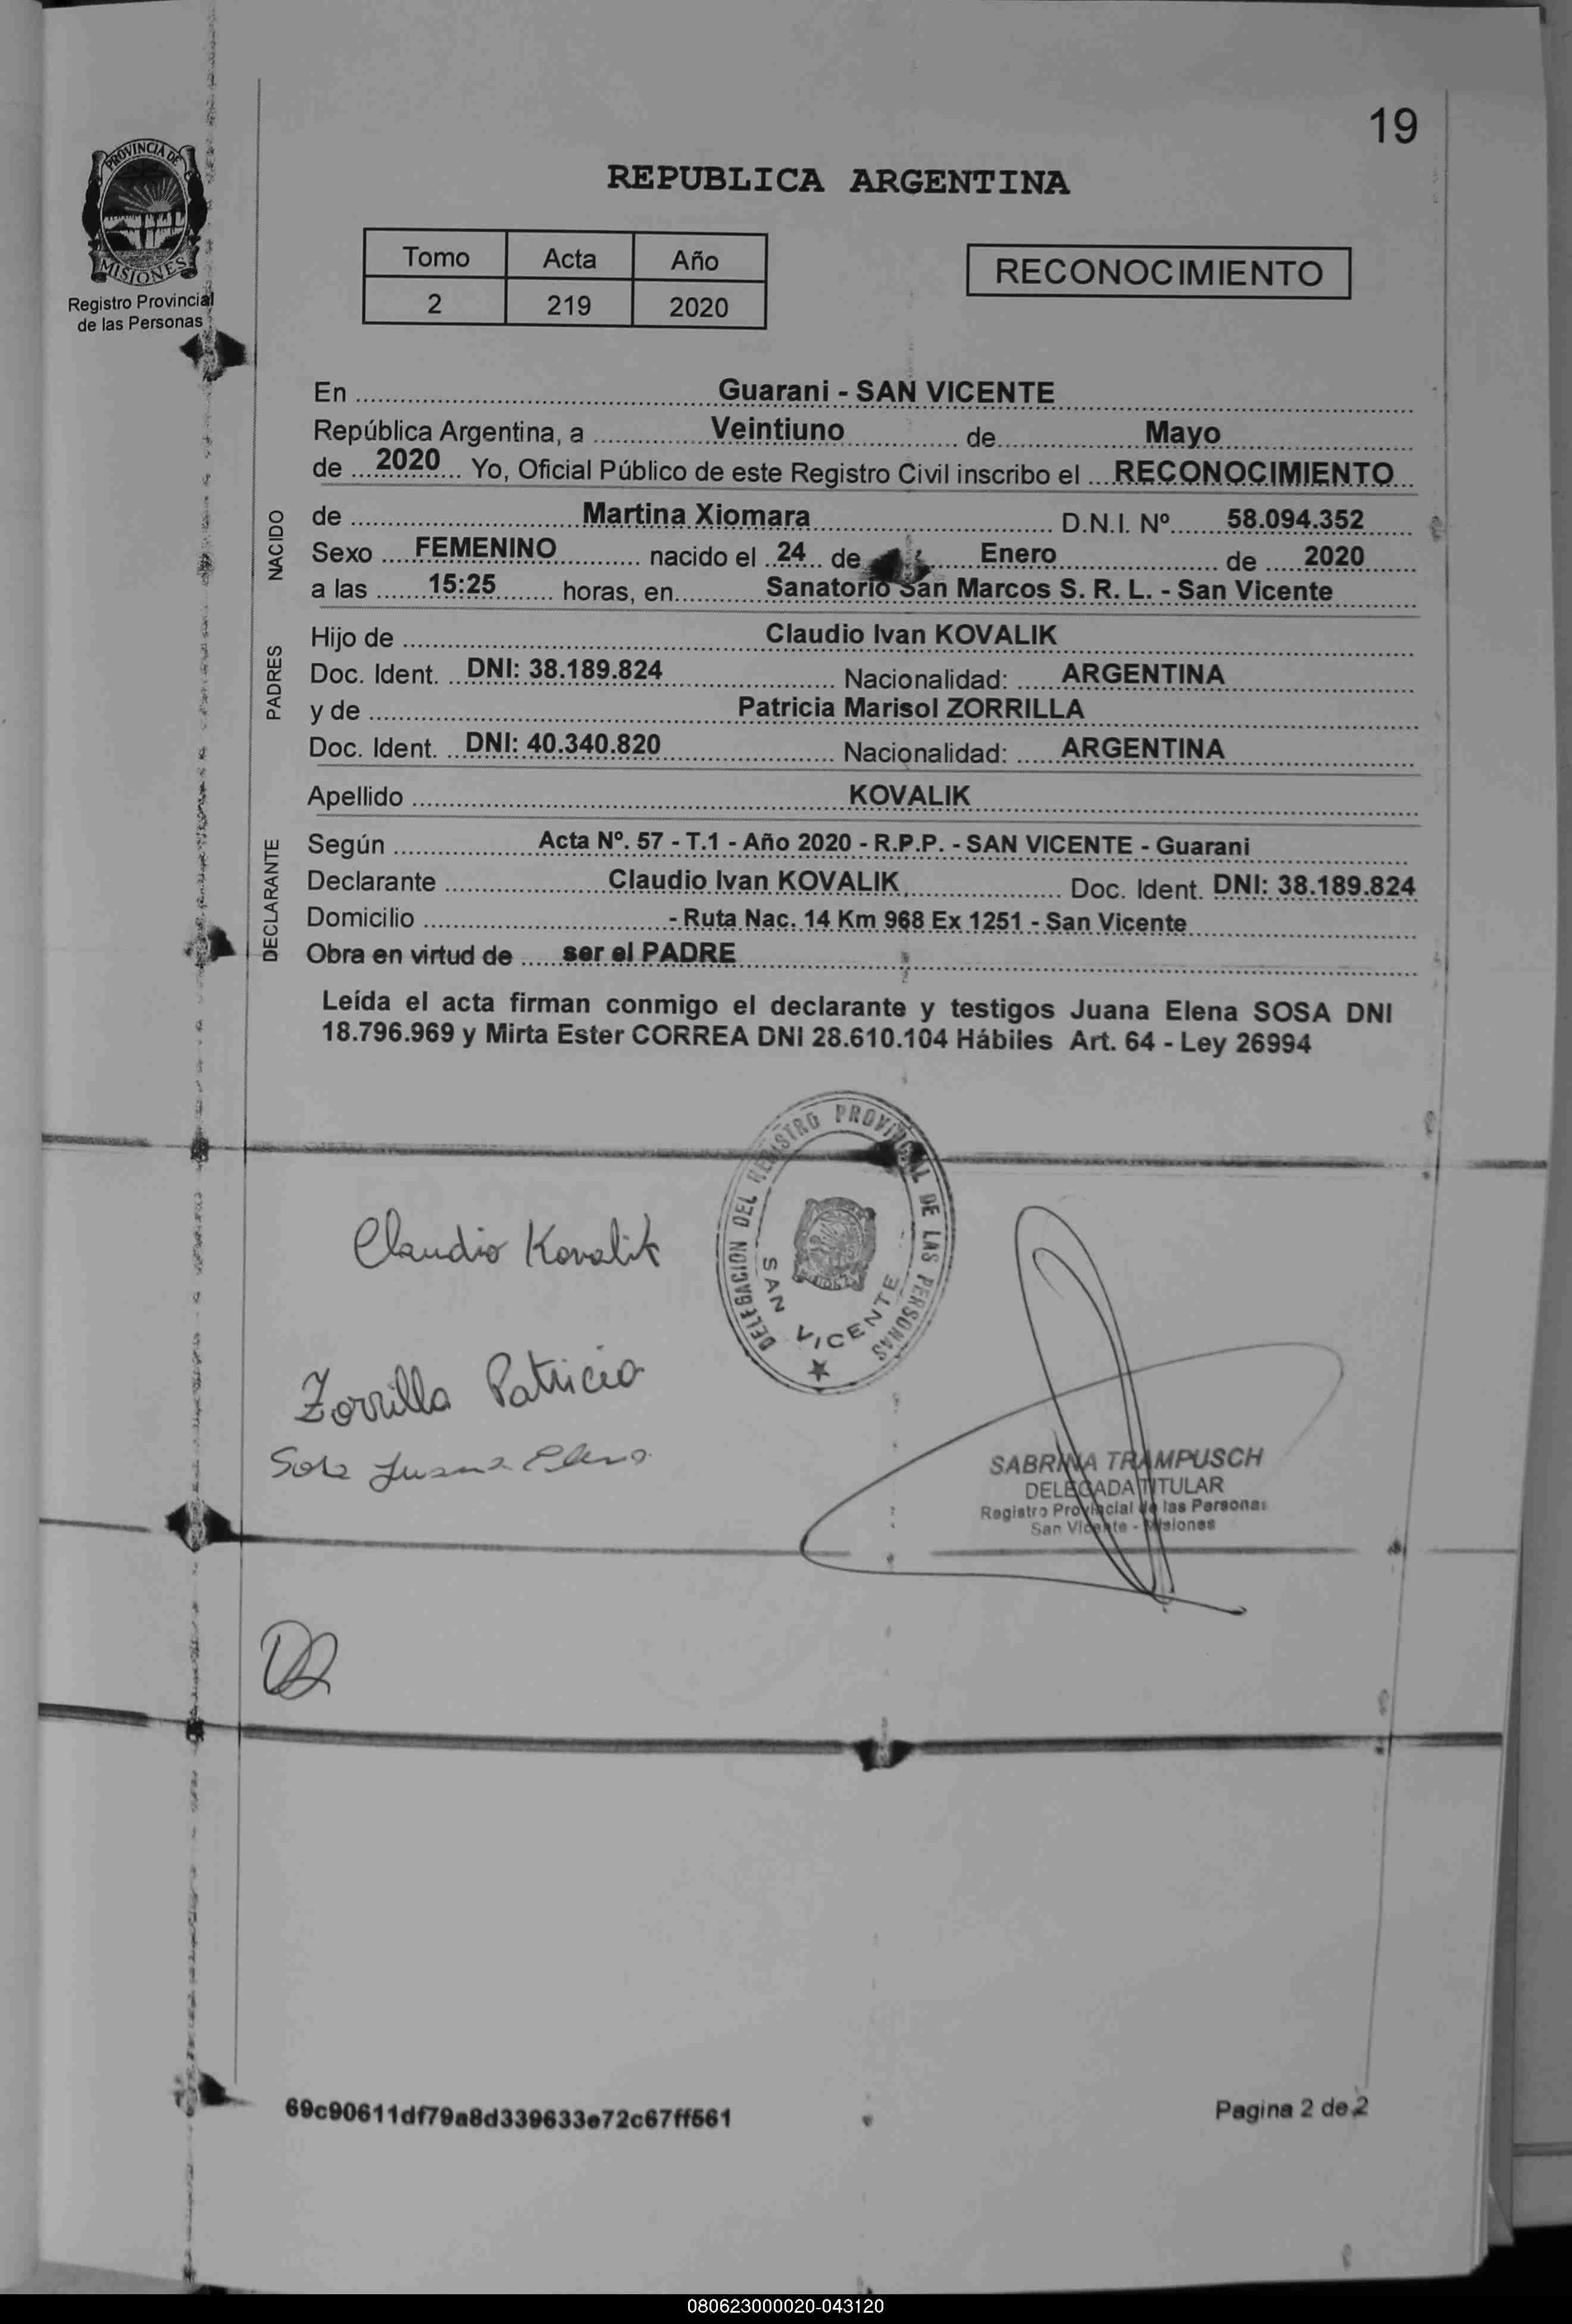 19
PROVINCIA DE
MISIONES
Registro Provincial
de las Personas
REPUBLICA ARGENTINA
Tomo Acta Año
2 219 2020
RECONOCIMIENTO
En Guarani - SAN VICENTE
República Argentina, a Veintiuno de Mayo
de 2020 Yo, Oficial Público de este Registro Civil inscribo el RECONOCIMIENTO
NACIDO
de Martina Xiomara D.N.I. Nº 58.094.352
Sexo FEMENINO nacido el 24 de Enero de 2020
a las 15:25 horas, en Sanatorio San Marcos S. R. L. - San Vicente
PADRES
Hijo de Claudio Ivan KOVALIK
Doc. Ident. DNI: 38.189.824 Nacionalidad: ARGENTINA
y de Patricia Marisol ZORRILLA
Doc. Ident. DNI: 40.340.820 Nacionalidad: ARGENTINA
Apellido KOVALIK
DECLARANTE
Según Acta Nº. 57 - T.1 - Año 2020 - R.P.P. - SAN VICENTE - Guarani
Declarante Claudio Ivan KOVALIK Doc. Ident. DNI: 38.189.824
Domicilio - Ruta Nac. 14 Km 968 Ex 1251 - San Vicente
Obra en virtud de ser el PADRE
Leída el acta firman conmigo el declarante y testigos Juana Elena SOSA DNI
18.796.969 y Mirta Ester CORREA DNI 28.610.104 Hábiles Art. 64 - Ley 26994
DELEGACION DEL REGISTRO PROVINCIAL DE LAS PERSONAS
SAN VICENTE
Claudio Kovalik
Zorrilla Patricia
Sosa Juana Elena
SABRINA TRAMPUSCH
DELEGADA TITULAR
Registro Provincial de las Personas
San Vicente - Misiones
69c90611df79a8d339633e72c67ff561
Pagina 2 de 2
080623000020-043120